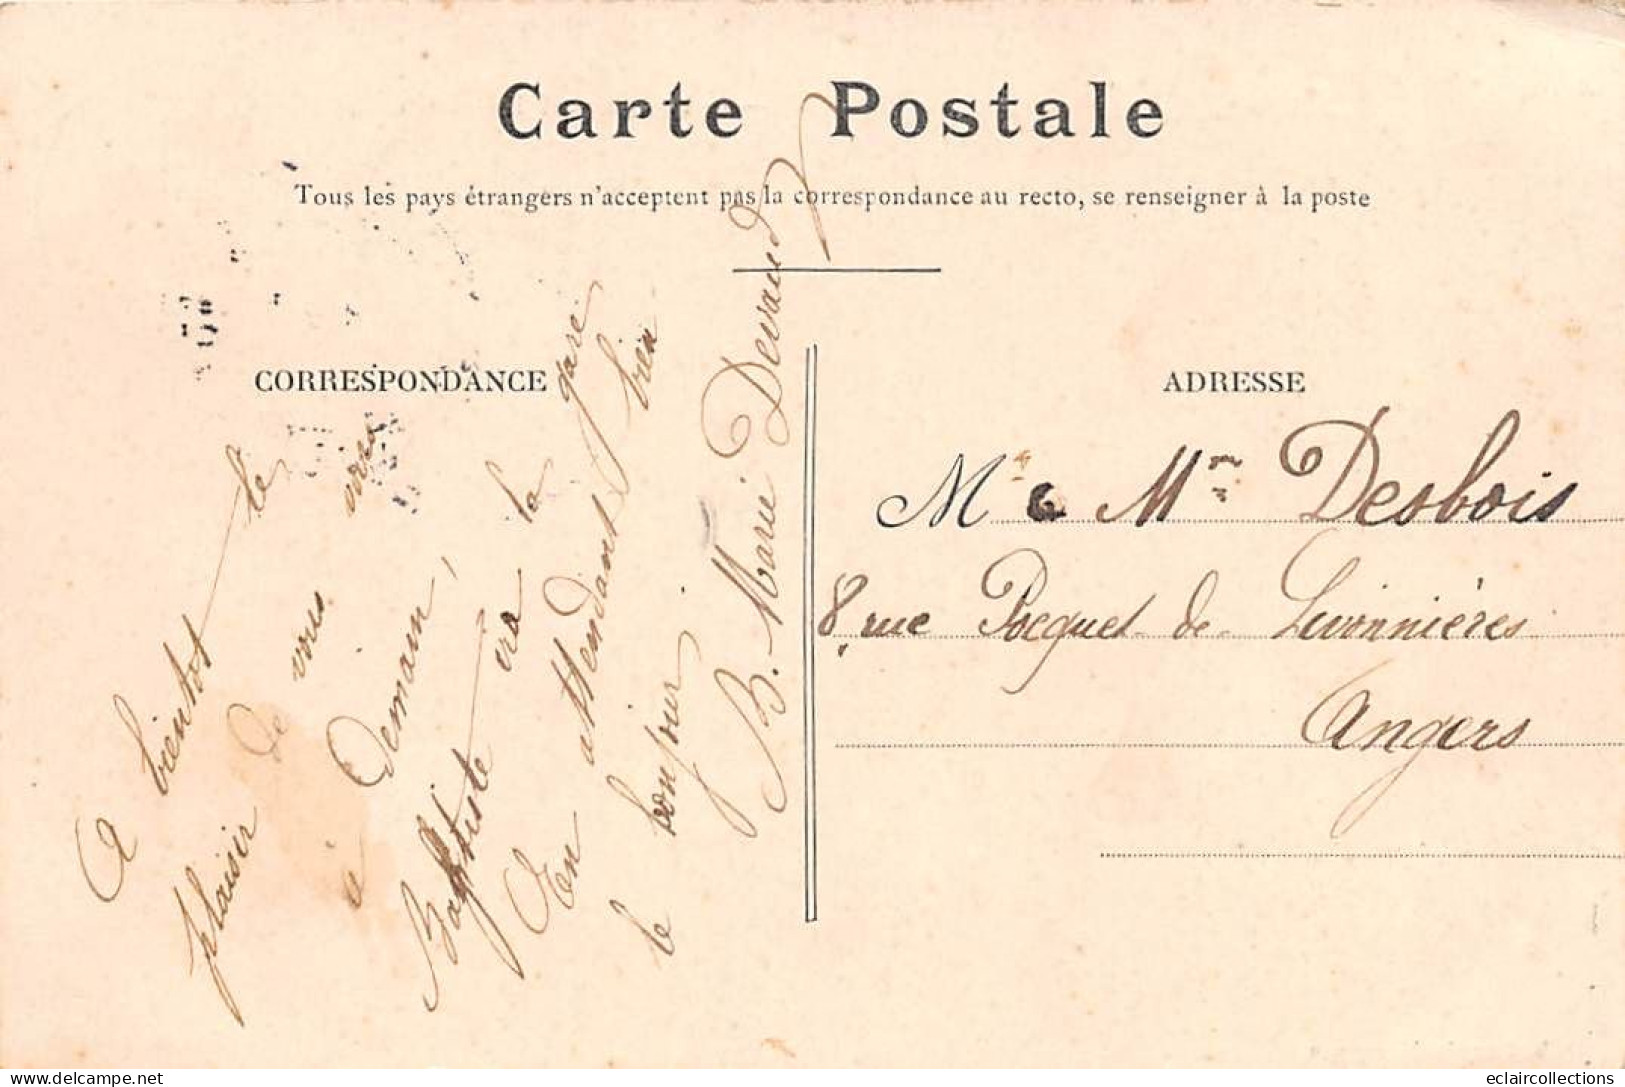 Carte Postale
Tous les pays étrangers n'acceptent pas la correspondance au recto, se renseigner à la poste
CORRESPONDANCE
A bientot le
plaisir de vous voir
à Demain,
Baptiste ira la gare
En attendant bien
le bonjour
B. Marie Devaud
ADRESSE
Mr & Mme Desbois
8 rue Pocquet de Livonnières
Angers
eclaircollections